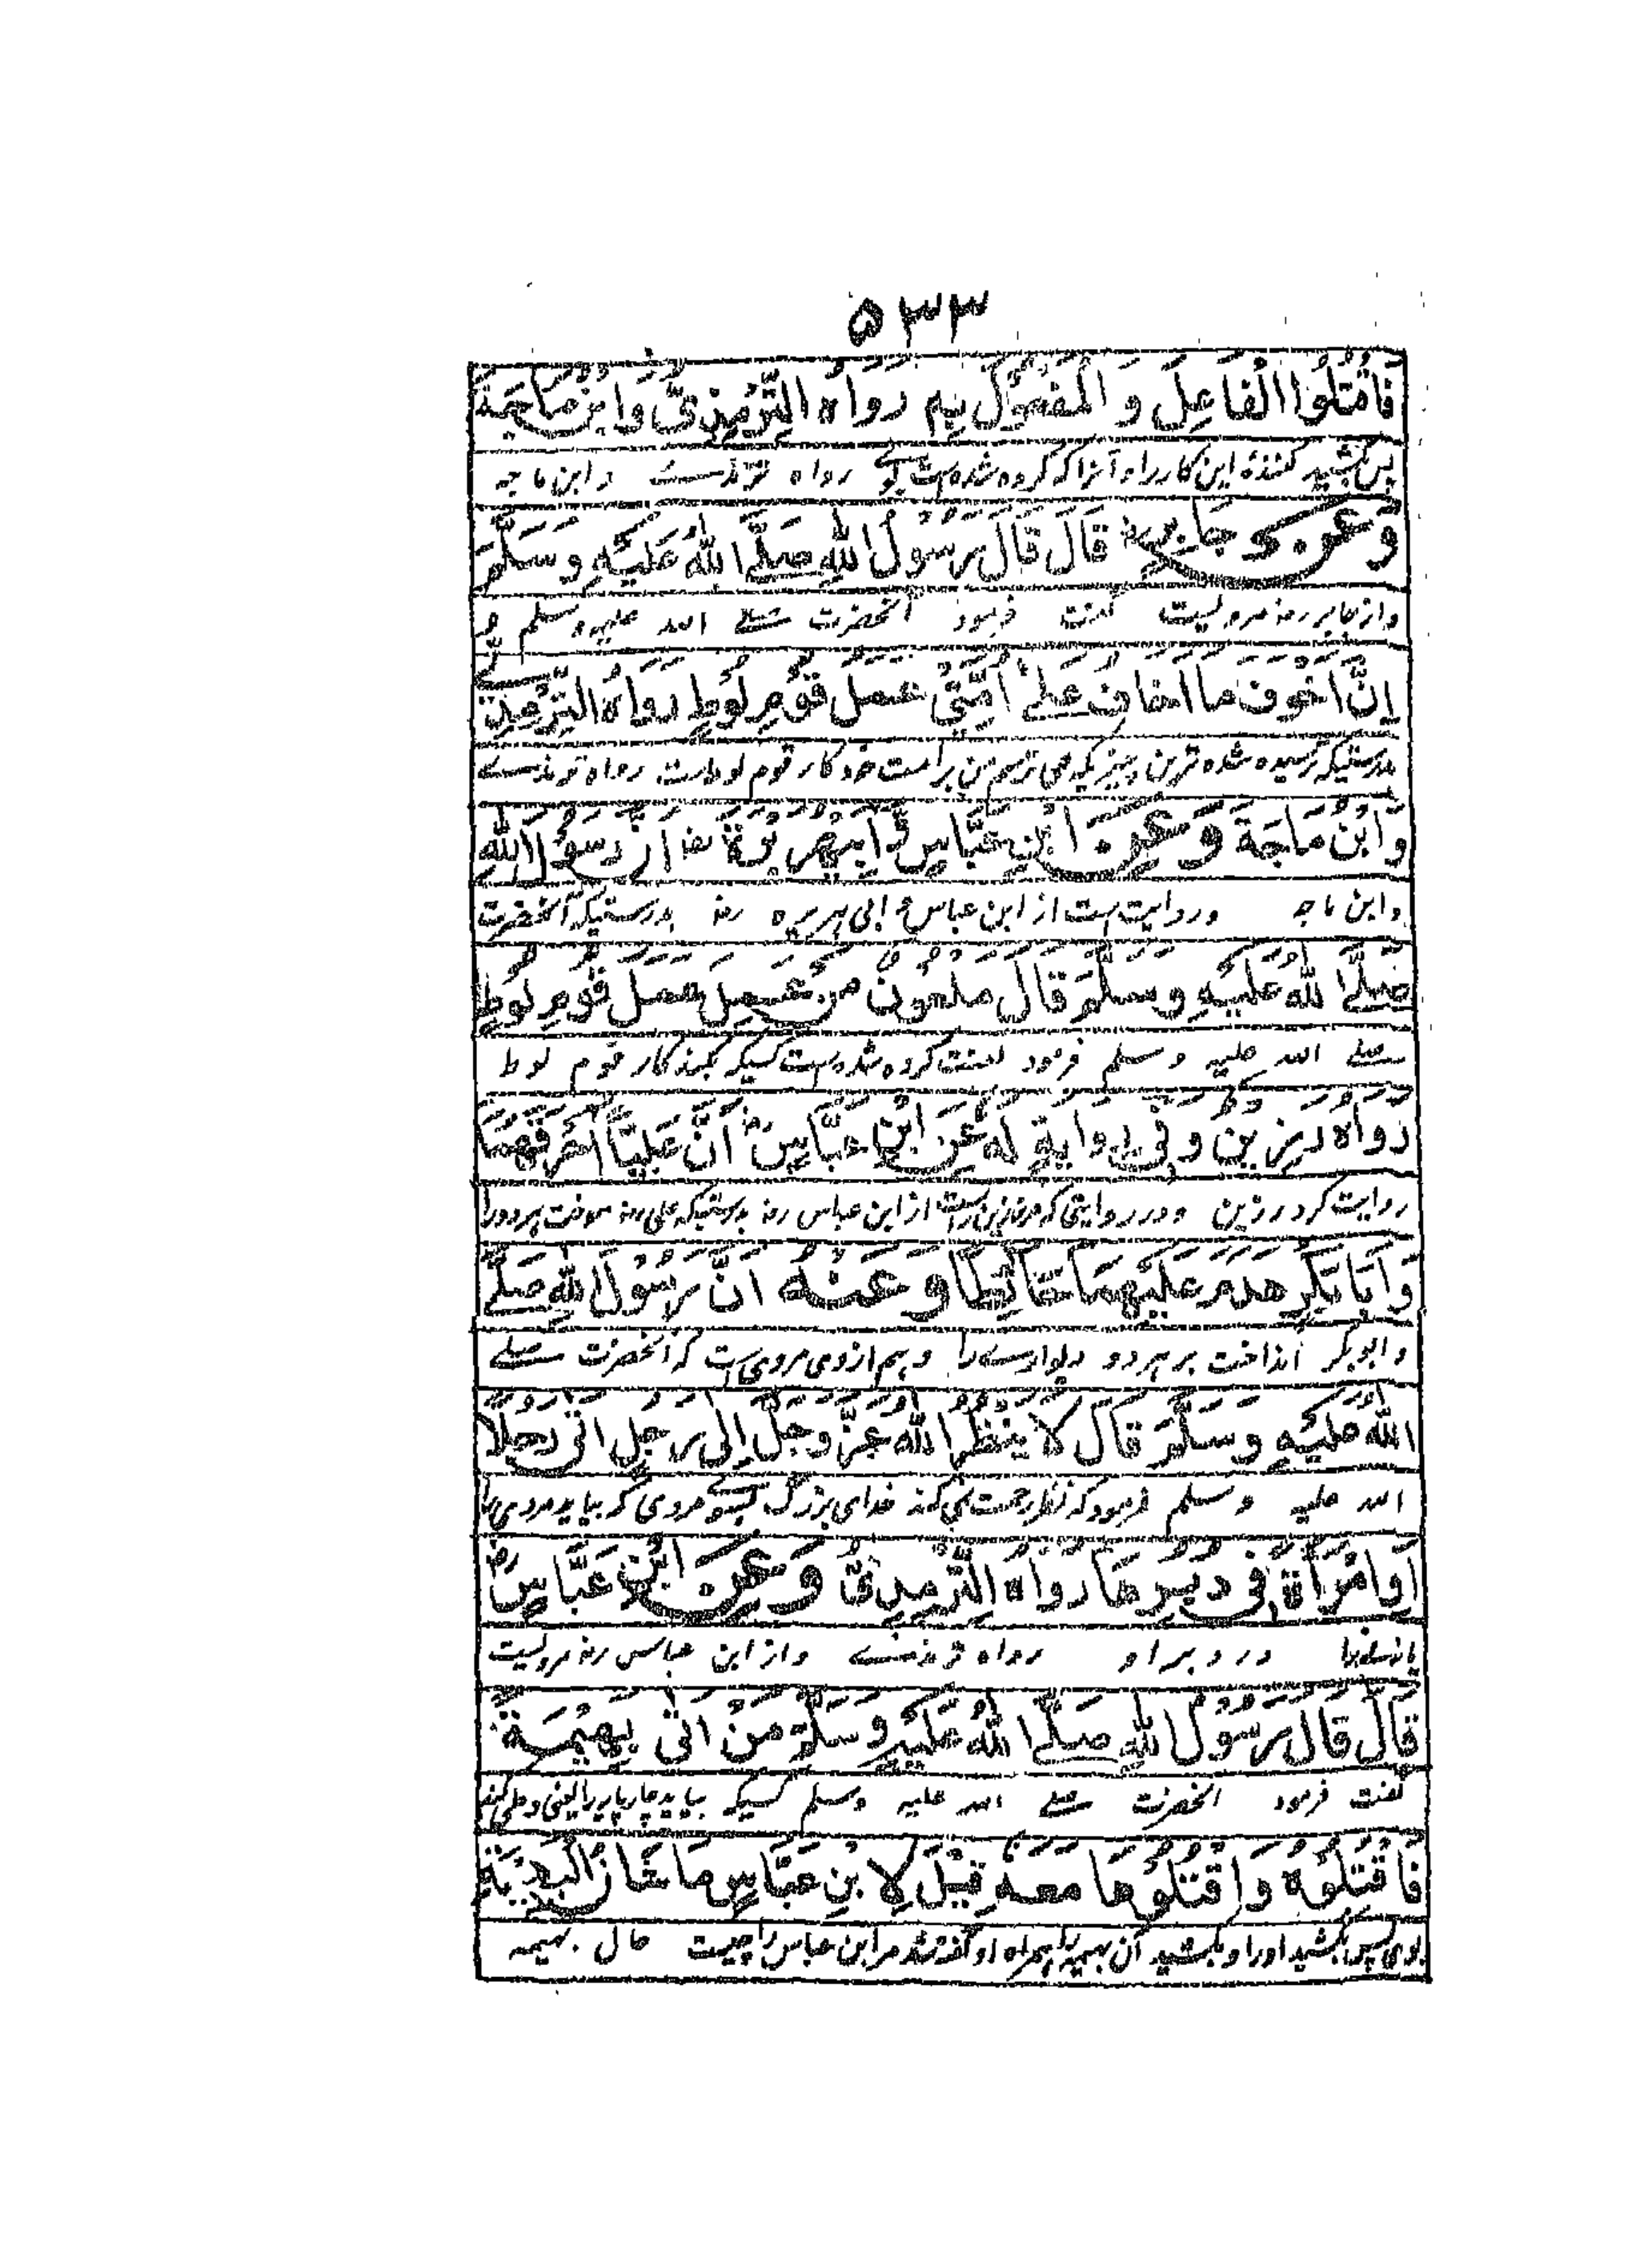 ۵۳۳
فَاقْتُلُوا الْفَاعِلَ وَ الْمَفْعُوْلَ بِهِ رَوَاهُ التِّرْمِذِيُّ وَابْنُ مَاجَةَ
پس بکشید کنندهٔ این کار را و آنرا که کرده شده است رواه ترمذے و ابن ماجه
وَعَنْ جَابِرٍ رض قَالَ قَالَ رَسُوْلُ اللهِ صَلَّى اللهُ عَلَيْهِ وَسَلَّمَ
و از جابر رضہ مرویست گفت فرمود آنحضرت صلے اللہ علیہ وسلم
اِنَّ اَخْوَفَ مَا اَخَافُ عَلٰى اُمَّتِيْ عَمَلُ قَوْمِ لُوْطٍ رَوَاهُ التِّرْمِذِيُّ
بدرستیکہ ترسیده شده ترین چیزیکہ می ترسم من بر امت خود کار قوم لوط است رواه ترمذے
وَابْنُ مَاجَةَ وَعَنِ ابْنِ عَبَّاسٍ وَّاَبِيْ هُرَيْرَةَ رض اَنَّ رَسُوْلَ اللهِ
و ابن ماجہ و روایت ست از ابن عباس و ابی ہریرہ رضہ بدرستیکہ آنحضرت
صَلَّى اللهُ عَلَيْهِ وَسَلَّمَ قَالَ مَلْعُوْنٌ مَنْ عَمِلَ عَمَلَ قَوْمِ لُوْطٍ
صلے اللہ علیہ وسلم فرمود لعنت کرده شده است کسیکہ بکند کار قوم لوط
رَوَاهُ رَزِيْنٌ وَفِيْ رِوَايَةٍ لَهُ عَنِ ابْنِ عَبَّاسٍ رض اَنَّ عَلِيًّا اَحْرَقَهُمَا
روایت کرد رزین و در روایتی کہ مر رزین راست از ابن عباس رضہ بدرستیکہ علی رضہ سوخت ہر دو را
وَاَبَا بَكْرٍ هَدَمَ عَلَيْهِمَا حَائِطًا وَعَنْهُ اَنَّ رَسُوْلَ اللهِ صَلَّى
و ابوبکر انداخت بر ہر دو دیوارے را و ہم ازوی مروی ست کہ آنحضرت صلے
اللهُ عَلَيْهِ وَسَلَّمَ قَالَ لَا يَنْظُرُ اللهُ عَزَّ وَجَلَّ اِلٰى رَجُلٍ اَتٰى رَجُلًا
اللہ علیہ وسلم فرمود کہ نظر رحمت نمی کند خدای بزرگ بسوے مردی کہ بیاید مردی را
اَوِ امْرَاَةً فِيْ دُبُرِهَا رَوَاهُ التِّرْمِذِيُّ وَعَنِ ابْنِ عَبَّاسٍ رض
یا زنے را در دبر او رواه ترمذے و از ابن عباس رضہ مرویست
قَالَ قَالَ رَسُوْلُ اللهِ صَلَّى اللهُ عَلَيْهِ وَسَلَّمَ مَنْ اَتٰى بَهِيْمَةً
گفت فرمود آنحضرت صلے اللہ علیہ وسلم کسیکہ بیاید چارپایہ را یعنی وطی کند
فَاقْتُلُوْهُ وَاقْتُلُوْهَا مَعَهُ قِيْلَ لِابْنِ عَبَّاسٍ مَا شَاْنُ الْبَهِيْمَةِ
بوی پس بکشید او را و بکشید آن بہیمہ را ہمراه او گفتہ شد مر ابن عباس را چیست حال بہیمہ